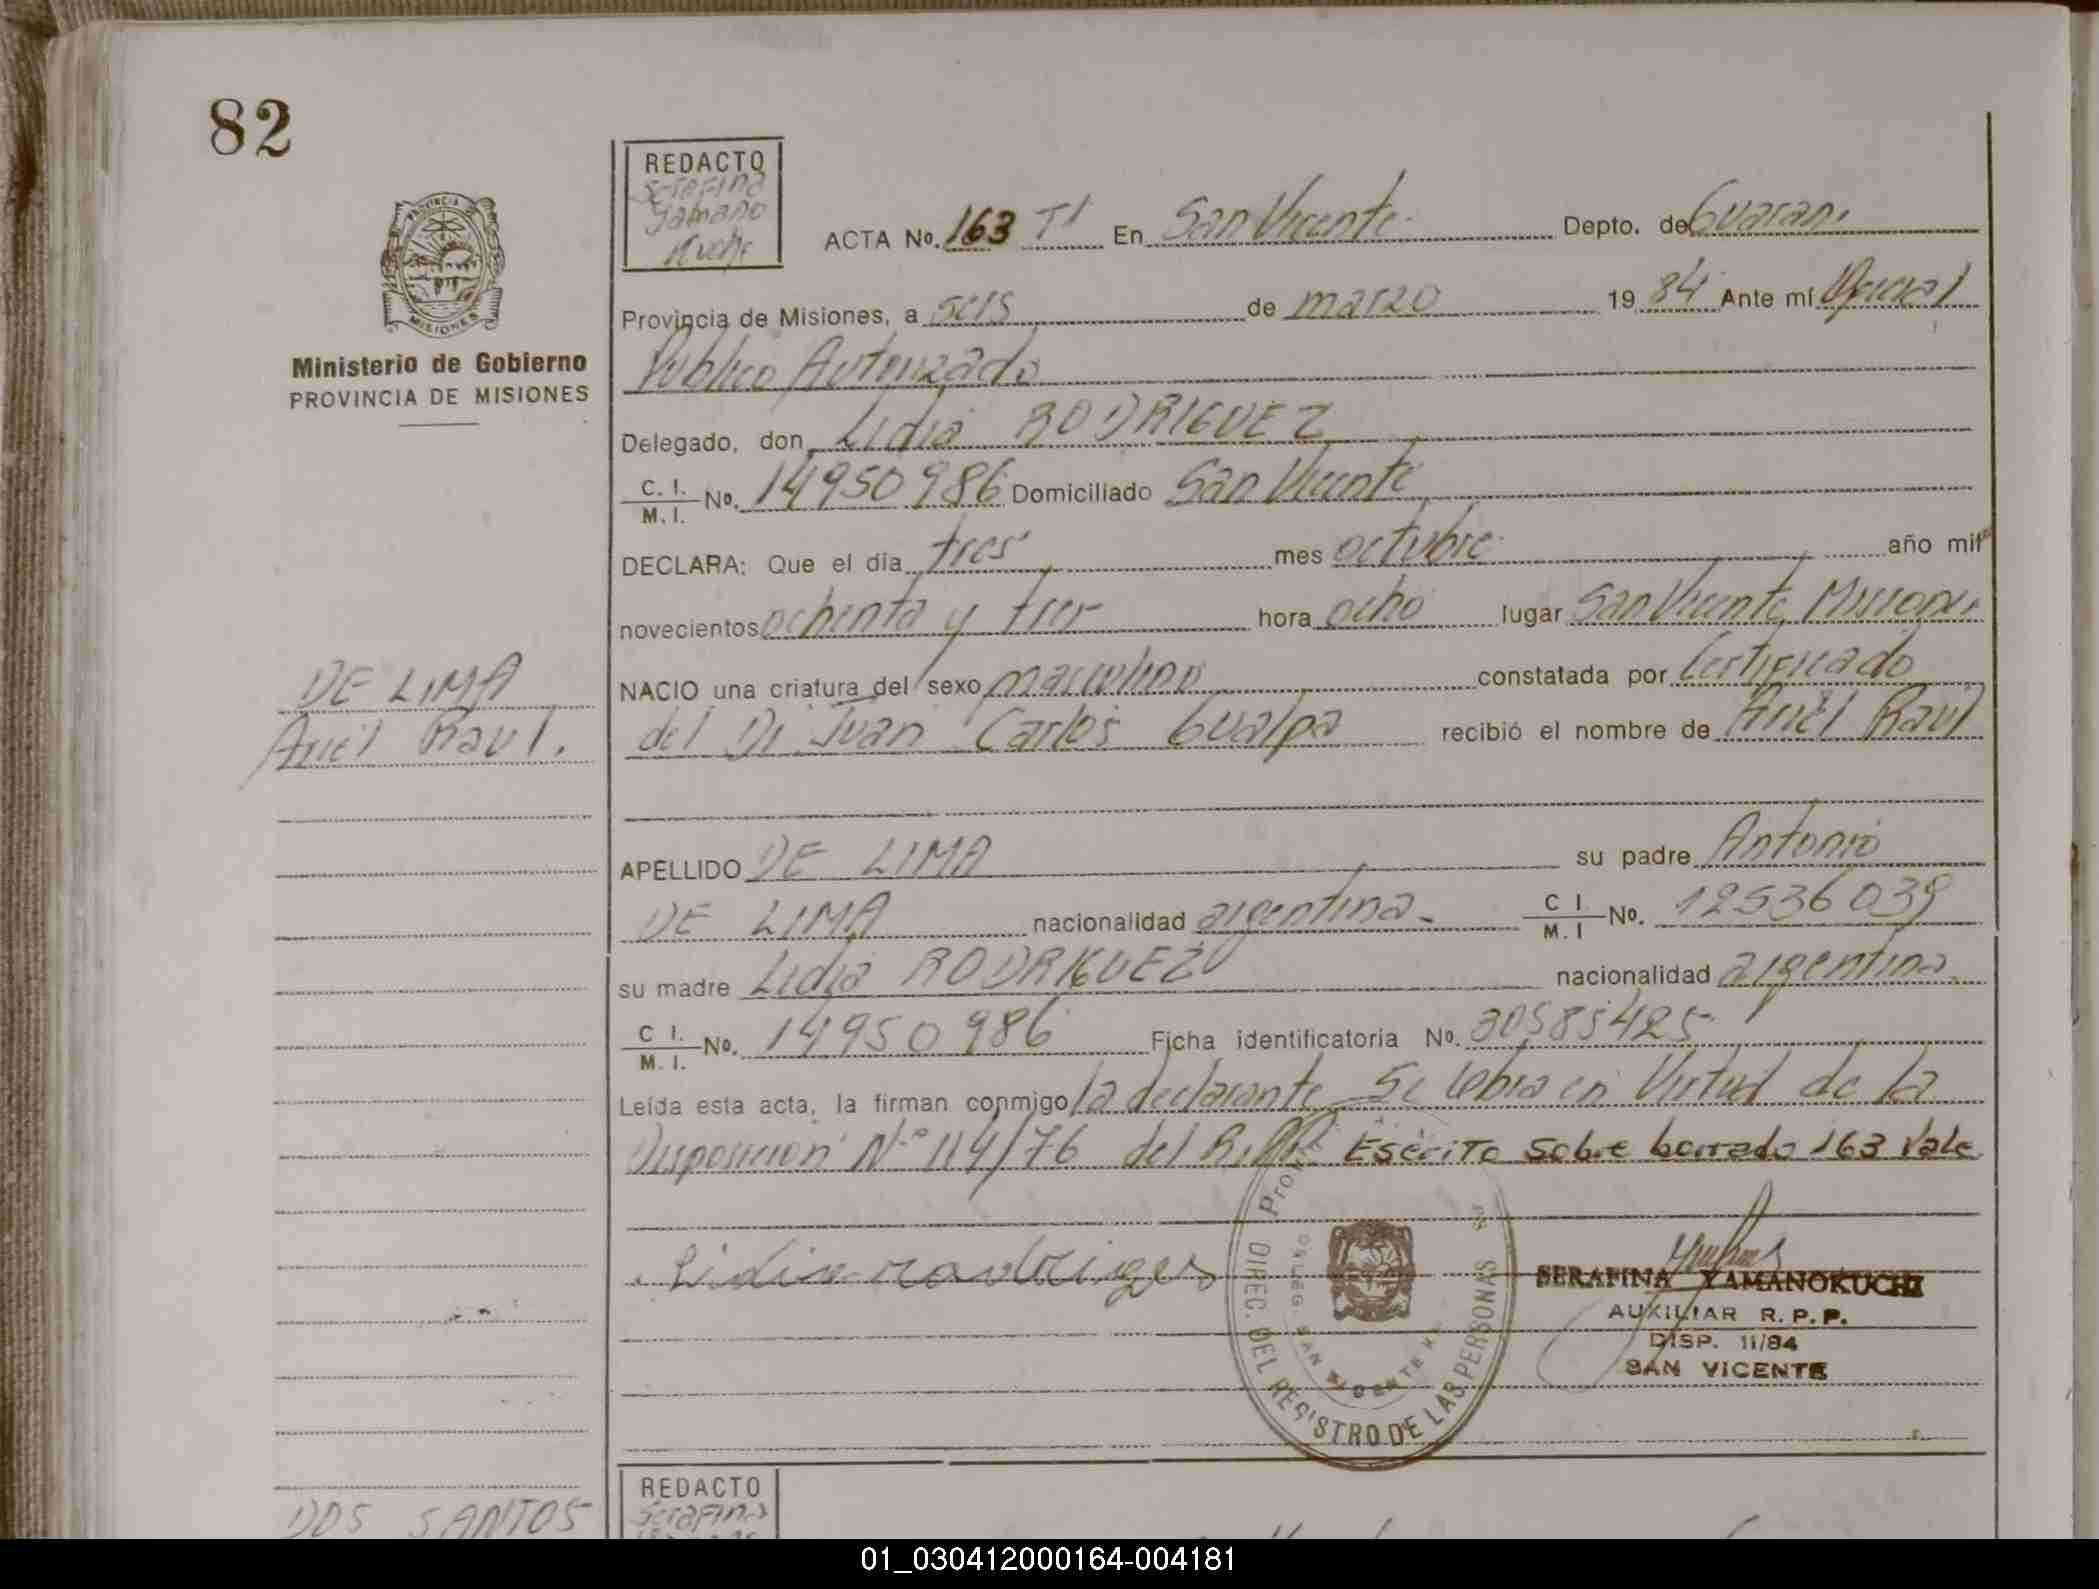 82
REDACTO
Serafina
Yamano
Kuchi
ACTA No. 163 T1 En San Vicente Depto. de Guarani
PROVINCIA DE
MISIONES
Provincia de Misiones, a seis de marzo 19 84 Ante mí Oficial
Publico Autorizado
Ministerio de Gobierno
PROVINCIA DE MISIONES
Delegado, don Lidia RODRIGUEZ
C. I. M. I. No. 14950986 Domiciliado San Vicente
DECLARA: Que el día tres mes octubre año mil
novecientos ochenta y tres hora ocho lugar San Vicente Misiones
DE LIMA
Ariel Raul.
NACIO una criatura del sexo masculino constatada por Certificado
del Dr. Juan Carlos Gualpa recibió el nombre de Ariel Raúl
APELLIDO DE LIMA su padre Antonio
DE LIMA nacionalidad argentina. C I. M. I No. 12536039
su madre Lidia RODRIGUEZ nacionalidad argentina
C I. M. I. No. 14950986 Ficha identificatoria No. 30585425
Leída esta acta, la firman conmigo la declarante Se labra en Virtud de la
Disposicion Nº 114/76 del Escrito sobre borrado 163 Vale
Lidia rodrigues
DIREC. DEL REGISTRO DE LAS PERSONAS
SAN VICENTE
SERAFINA YAMANOKUCHI
AUXILIAR R. P. P.
DISP. 11/84
SAN VICENTE
DOS SANTOS
REDACTO
Serafina
01_030412000164-004181